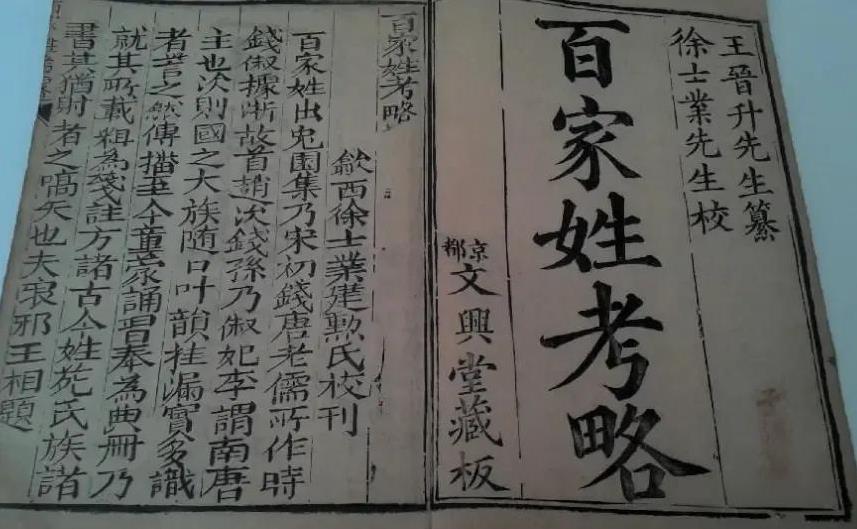 王晉升先生纂
徐士業先生校
百家姓考略
京都
文興堂藏板
百家姓考略
歙西徐士業建勲氏校刊
百家姓出兎園集乃宋初錢唐老儒所作時
錢俶據浙故首趙次錢孫乃俶妃李謂南唐
主也次則國之大族随口叶韻挂漏實多識
者訾之然傳播至今童蒙誦習奉為典冊乃
就其所載輯為箋註方諸古今姓苑氏族諸
書其猶射者之嚆矢也夫琅邪王相題